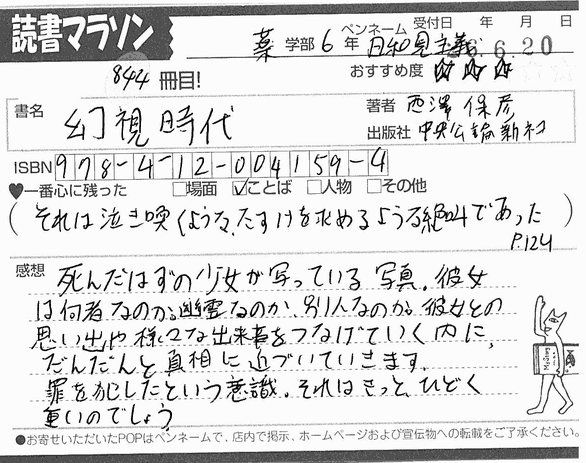 読書マラソン
ペンネーム 受付日 年 月 日
薬 学部 6 年 日和見主義 6.20
844 冊目! おすすめ度 ☆☆☆
書名 幻視時代
著者 西澤 保彦
出版社 中央公論新社
ISBN 978-4-12-004159-4
♥一番心に残った □場面 ☑ことば □人物 □その他
(それは泣き喚くような、たすけを求めるような絶叫であった)
P.124
感想 死んだはずの少女が写っている写真。彼女
は何者なのか、幽霊なのか、別人なのか。彼女との
思い出や様々な出来事をつなげていく内に、
だんだんと真相に近づいていきます。
罪を犯したという意識。それはきっと、ひどく
重いのでしょう
●お寄せいただいたPOPはペンネームで、店内で掲示、ホームページおよび宣伝物への転載をご了承ください。